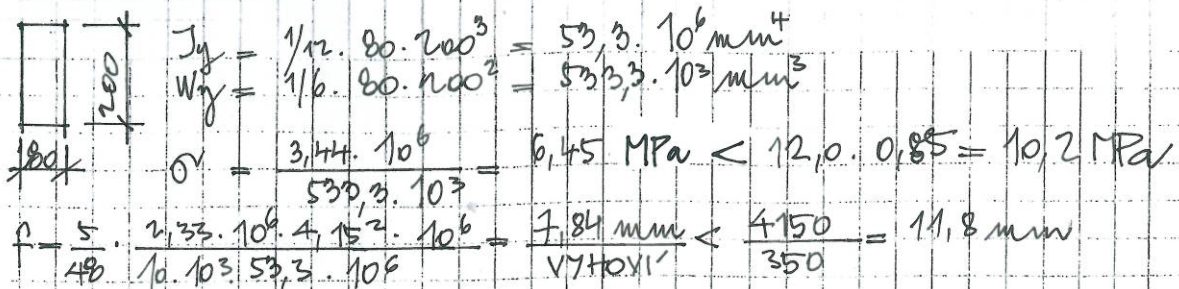 Jy = 1/12. 80. 200³ = 53,3. 10⁶ mm⁴
200
Wy = 1/6. 80. 200² = 533,3. 10³ mm³
80
σ = 3,44. 10⁶ / 533,3. 10³ = 6,45 MPa < 12,0. 0,85 = 10,2 MPa
f = 5/48 · 2,33. 10⁶. 4,15². 10⁶ / 10. 10³. 53,3. 10⁶ = 7,84 mm < 4150/350 = 11,8 mm
VYHOVÍ